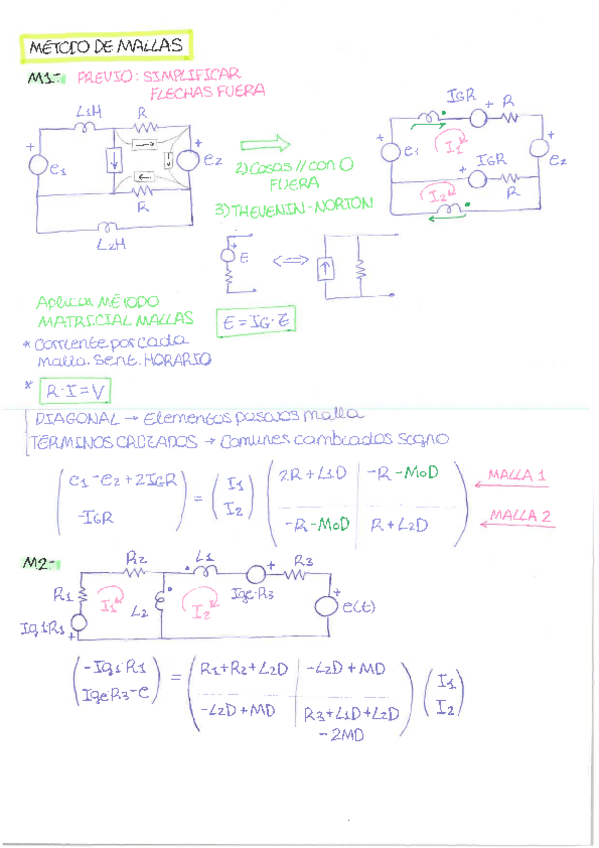 MÉTODO DE MALLAS
M1- PREVIO: SIMPLIFICAR
FLECHAS FUERA
L1H
R
+
e1
+
e2
R
L2H
2) Cosas // con 0
FUERA
3) THEVENIN-NORTON
IGR
+
R
+
e1
I1
+
e2
IGR
+
R
I2
+
E
<=>
E = IG·Z
Aplicar MÉTODO
MATRICIAL MALLAS
* Corriente por cada
malla. Sent. HORARIO
* R·I=V
DIAGONAL → Elementos pasivos malla
TÉRMINOS CRUZADOS → Comunes cambiados signo
e1-e2+2IGR
-IGR
=
I1
I2
2R+L1D
-R-MoD
-R-MoD
R+L2D
MALLA 1
MALLA 2
M2-
R2
L1
+
R3
R1
I1
L2
I2
Ige·R3
+
e(t)
Ig1·R1
+
-Ig1·R1
Ige·R3-e
=
R1+R2+L2D
-L2D+MD
-L2D+MD
R3+L1D+L2D
-2MD
I1
I2